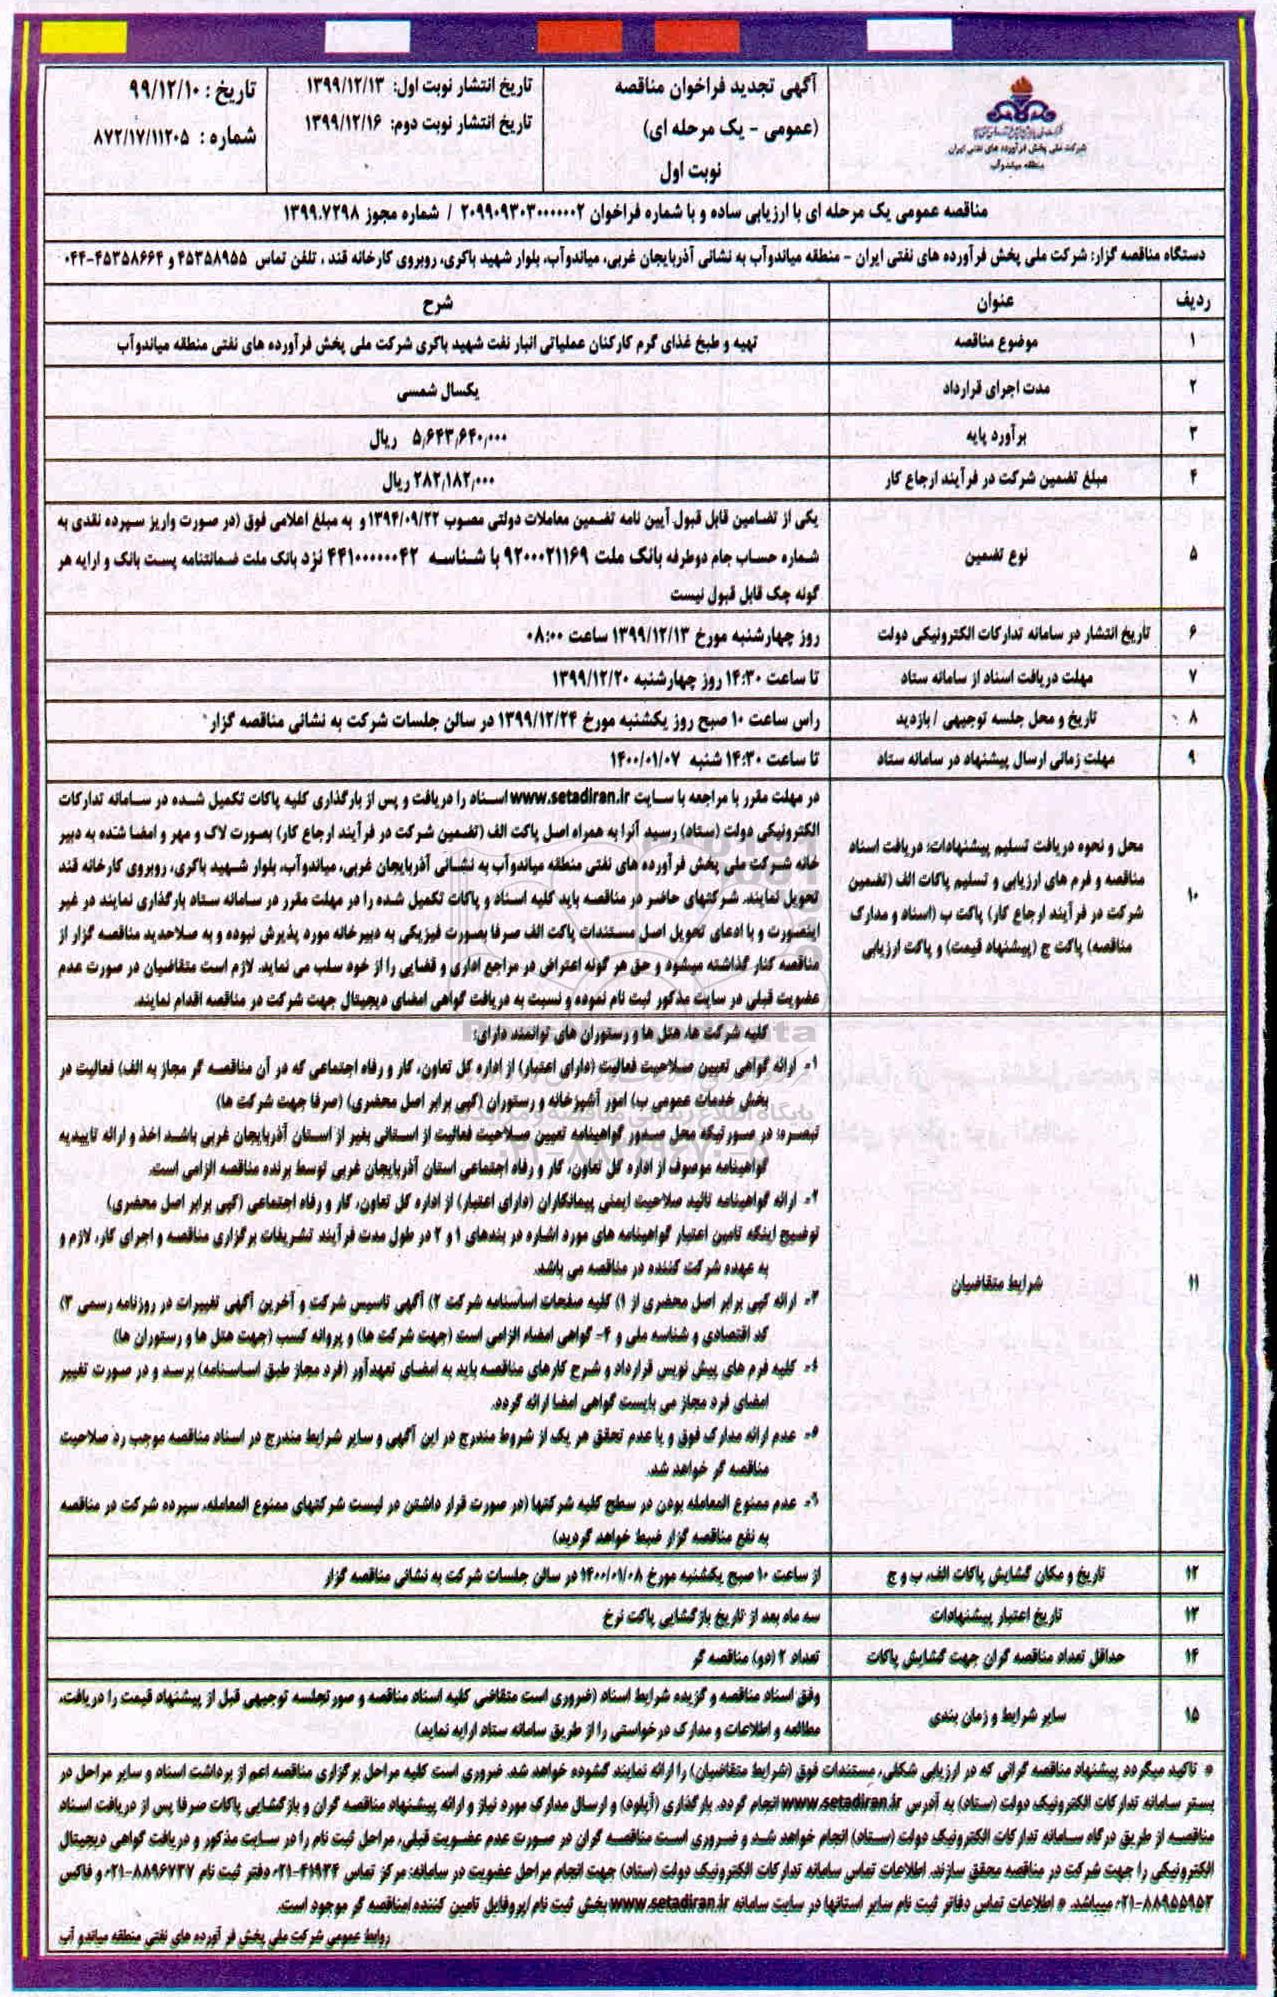 شرکت ملی پخش فرآورده های نفتی ایران
منطقه میاندوآب
آگهی تجدید فراخوان مناقصه
(عمومی - یک مرحله ای)
نوبت اول
تاریخ انتشار نوبت اول: ۱۳۹۹/۱۲/۱۳
تاریخ انتشار نوبت دوم: ۱۳۹۹/۱۲/۱۶
تاریخ : ۹۹/۱۲/۱۰
شماره : ۸۷۲/۱۷/۱۱۲۰۵
مناقصه عمومی یک مرحله ای با ارزیابی ساده و با شماره فراخوان ۲۰۹۹۰۹۳۰۳۰۰۰۰۰۰۲ / شماره مجوز ۱۳۹۹.۷۲۹۸
دستگاه مناقصه گزار: شرکت ملی پخش فرآورده های نفتی ایران - منطقه میاندوآب به نشانی آذربایجان غربی، میاندوآب، بلوار شهید باکری، روبروی کارخانه قند ، تلفن تماس ۴۵۳۵۸۹۵۵ و ۴۵۳۵۸۶۶۴-۰۴۴
ردیف عنوان شرح
۱ موضوع مناقصه تهیه و طبخ غذای گرم کارکنان عملیاتی انبار نفت شهید باکری شرکت ملی پخش فرآورده های نفتی منطقه میاندوآب
۲ مدت اجرای قرارداد یکسال شمسی
۳ برآورد پایه ۵,۶۴۳,۶۴۰,۰۰۰ ریال
۴ مبلغ تضمین شرکت در فرآیند ارجاع کار ۲۸۲,۱۸۲,۰۰۰ ریال
۵ نوع تضمین یکی از تضامین قابل قبول آیین نامه تضمین معاملات دولتی مصوب ۱۳۹۴/۰۹/۲۲ و به مبلغ اعلامی فوق (در صورت واریز سپرده نقدی به
شماره حساب جام دوطرفه بانک ملت ۹۲۰۰۰۲۱۱۶۹ با شناسه ۴۴۱۰۰۰۰۰۰۴۲ نزد بانک ملت ضمانتنامه پست بانک و ارایه هر
گونه چک قابل قبول نیست
۶ تاریخ انتشار در سامانه تدارکات الکترونیکی دولت روز چهارشنبه مورخ ۱۳۹۹/۱۲/۱۳ ساعت ۰۸:۰۰
۷ مهلت دریافت اسناد از سامانه ستاد تا ساعت ۱۴:۳۰ روز چهارشنبه ۱۳۹۹/۱۲/۲۰
۸ تاریخ و محل جلسه توجیهی / بازدید راس ساعت ۱۰ صبح روز یکشنبه مورخ ۱۳۹۹/۱۲/۲۴ در سالن جلسات شرکت به نشانی مناقصه گزار
۹ مهلت زمانی ارسال پیشنهاد در سامانه ستاد تا ساعت ۱۴:۳۰ شنبه ۱۴۰۰/۰۱/۰۷
۱۰ محل و نحوه دریافت تسلیم پیشنهادات: دریافت اسناد
مناقصه و فرم های ارزیابی و تسلیم پاکات الف (تضمین
شرکت در فرآیند ارجاع کار) پاکت ب (اسناد و مدارک
مناقصه) پاکت ج (پیشنهاد قیمت) و پاکت ارزیابی
در مهلت مقرر با مراجعه با سایت www.setadiran.ir اسناد را دریافت و پس از بارگذاری کلیه پاکات تکمیل شده در سامانه تدارکات
الکترونیکی دولت (ستاد) رسید آنرا به همراه اصل پاکت الف (تضمین شرکت در فرآیند ارجاع کار) بصورت لاک و مهر و امضا شده به دبیر
خانه شرکت ملی پخش فرآورده های نفتی منطقه میاندوآب به نشانی آذربایجان غربی، میاندوآب، بلوار شهید باکری، روبروی کارخانه قند
تحویل نمایند. شرکتهای حاضر در مناقصه باید کلیه اسناد و پاکات تکمیل شده را در مهلت مقرر در سامانه ستاد بارگذاری نمایند در غیر
اینصورت و با ادعای تحویل اصل مستندات پاکت الف صرفا بصورت فیزیکی به دبیرخانه مورد پذیرش نبوده و به صلاحدید مناقصه گزار از
مناقصه کنار گذاشته میشود و حق هر گونه اعتراض در مراجع اداری و قضایی را از خود سلب می نماید. لازم است متقاضیان در صورت عدم
عضویت قبلی در سایت مذکور ثبت نام نموده و نسبت به دریافت گواهی امضای دیجیتال جهت شرکت در مناقصه اقدام نمایند.
۱۱ شرایط متقاضیان
کلیه شرکت ها، هتل ها و رستوران های توانمند دارای:
۱- ارائه گواهی تعیین صلاحیت فعالیت (دارای اعتبار) از اداره کل تعاون، کار و رفاه اجتماعی که در آن مناقصه گر مجاز به الف) فعالیت در
بخش خدمات عمومی ب) امور آشپزخانه و رستوران (کپی برابر اصل محضری) (صرفا جهت شرکت ها)
تبصره: در صورتیکه محل صدور گواهینامه تعیین صلاحیت فعالیت از استانی بغیر از استان آذربایجان غربی باشد اخذ و ارائه تاییدیه
گواهینامه موصوف از اداره کل تعاون، کار و رفاه اجتماعی استان آذربایجان غربی توسط برنده مناقصه الزامی است.
۲- ارائه گواهینامه تائید صلاحیت ایمنی پیمانکاران (دارای اعتبار) از اداره کل تعاون، کار و رفاه اجتماعی (کپی برابر اصل محضری)
توضیح اینکه تامین اعتبار گواهینامه های مورد اشاره در بندهای ۱ و ۲ در طول مدت فرآیند تشریفات برگزاری مناقصه و اجرای کار، لازم و
به عهده شرکت کننده در مناقصه می باشد.
۳- ارائه کپی برابر اصل محضری از ۱) کلیه صفحات اساسنامه شرکت ۲) آگهی تاسیس شرکت و آخرین آگهی تغییرات در روزنامه رسمی ۳)
کد اقتصادی و شناسه ملی و ۴- گواهی امضاء الزامی است (جهت شرکت ها) و پروانه کسب (جهت هتل ها و رستوران ها)
۴- کلیه فرم های پیش نویس قرارداد و شرح کارهای مناقصه باید به امضای تعهدآور (فرد مجاز طبق اساسنامه) برسد و در صورت تغییر
امضای فرد مجاز می بایست گواهی امضا ارائه گردد.
۵- عدم ارائه مدارک فوق و یا عدم تحقق هر یک از شروط مندرج در این آگهی و سایر شرایط مندرج در اسناد مناقصه موجب رد صلاحیت
مناقصه گر خواهد شد.
۶- عدم ممنوع المعامله بودن در سطح کلیه شرکتها (در صورت قرار داشتن در لیست شرکتهای ممنوع المعامله، سپرده شرکت در مناقصه
به نفع مناقصه گزار ضبط خواهد گردید)
۱۲ تاریخ و مکان گشایش پاکات الف، ب و ج از ساعت ۱۰ صبح یکشنبه مورخ ۱۴۰۰/۰۱/۰۸ در سالن جلسات شرکت به نشانی مناقصه گزار
۱۳ تاریخ اعتبار پیشنهادات سه ماه بعد از تاریخ بازگشایی پاکت نرخ
۱۴ حداقل تعداد مناقصه گران جهت گشایش پاکات تعداد ۲ (دو) مناقصه گر
۱۵ سایر شرایط و زمان بندی وفق اسناد مناقصه و گزیده شرایط اسناد (ضروری است متقاضی کلیه اسناد مناقصه و صورتجلسه توجیهی قبل از پیشنهاد قیمت را دریافت،
مطالعه و اطلاعات و مدارک درخواستی را از طریق سامانه ستاد ارایه نماید)
* تاکید میگردد پیشنهاد مناقصه گرانی که در ارزیابی شکلی، مستندات فوق (شرایط متقاضیان) را ارائه نمایند گشوده خواهد شد. ضروری است کلیه مراحل برگزاری مناقصه اعم از برداشت اسناد و سایر مراحل در
بستر سامانه تدارکات الکترونیک دولت (ستاد) به آدرس www.setadiran.ir انجام گردد. بارگذاری (آپلود) و ارسال مدارک مورد نیاز و ارائه پیشنهاد مناقصه گران و بازگشایی پاکات صرفا پس از دریافت اسناد
مناقصه از طریق درگاه سامانه تدارکات الکترونیک دولت (ستاد) انجام خواهد شد و ضروری است مناقصه گران در صورت عدم عضویت قبلی، مراحل ثبت نام را در سایت مذکور و دریافت گواهی دیجیتال
الکترونیکی را جهت شرکت در مناقصه محقق سازند. اطلاعات تماس سامانه تدارکات الکترونیک دولت (ستاد) جهت انجام مراحل عضویت در سامانه: مرکز تماس ۴۱۹۳۴-۰۲۱ دفتر ثبت نام ۸۸۹۶۷۳۷-۰۲۱ و فاکس
۸۸۹۵۵۹۵۲-۰۲۱ میباشد. * اطلاعات تماس دفاتر ثبت نام سایر استانها در سایت سامانه www.setadiran.ir بخش ثبت نام /پروفایل تامین کننده /مناقصه گر موجود است.
روابط عمومی شرکت ملی پخش فر آورده های نفتی منطقه میاندو آب